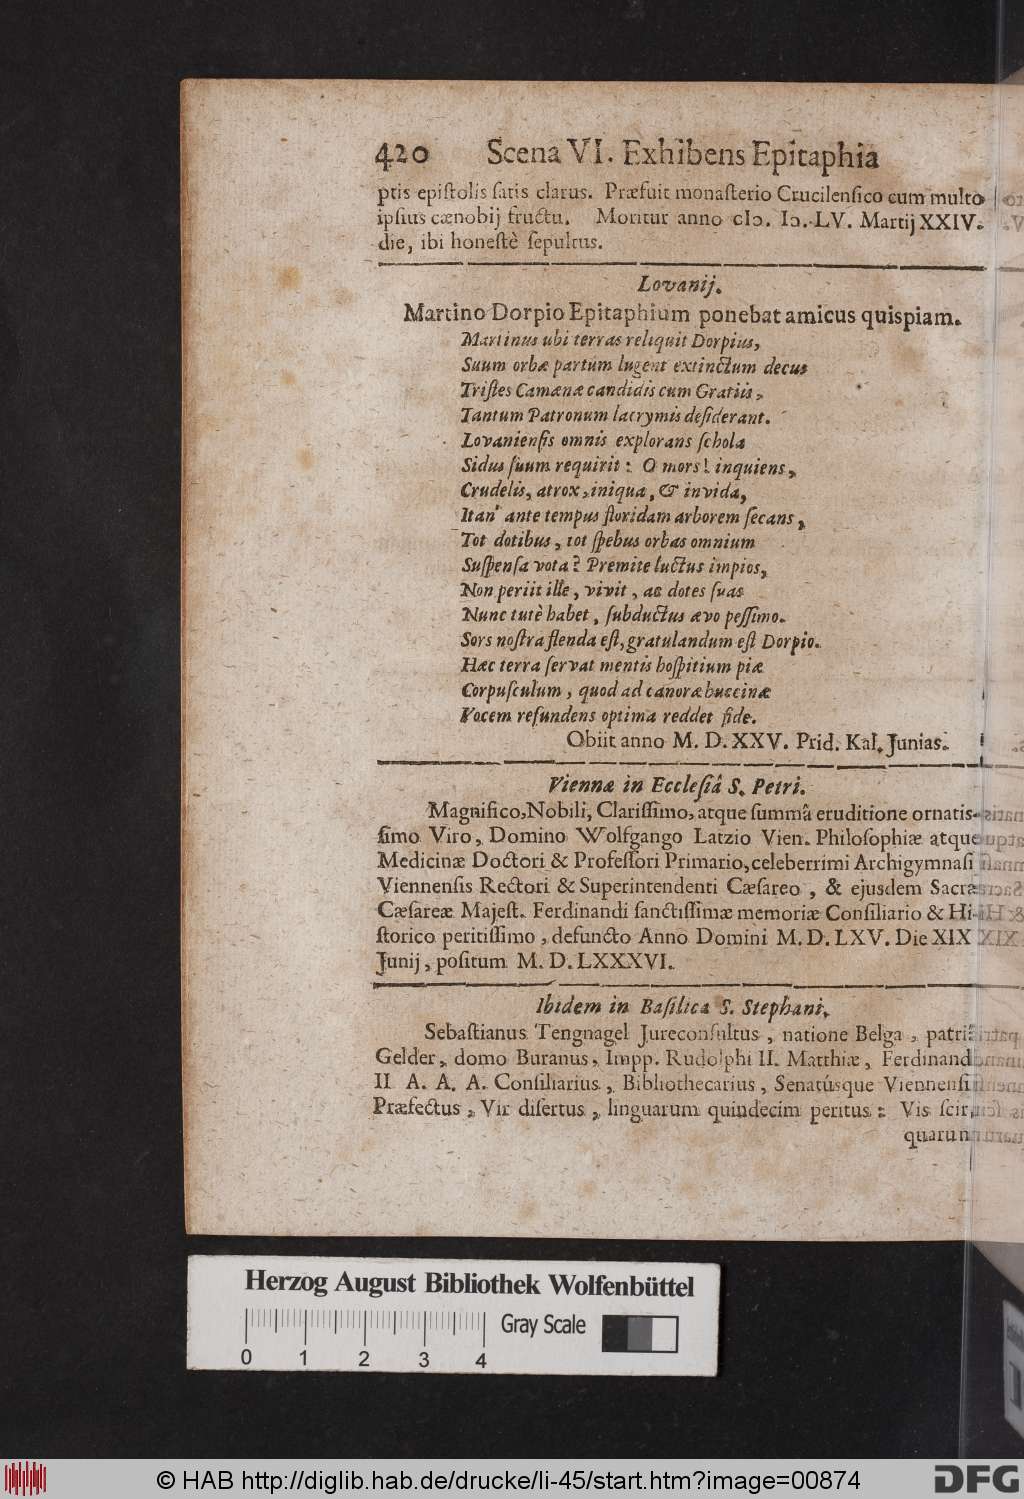 420 Scena VI. Exhibens Epitaphia
ptis epistolis satis clarus. Præfuit monasterio Crucilensico cum multo
ipsius cænobij fructu. Moritur anno cIↄ. Iↄ. LV. Martij XXIV.
die, ibi honestè sepultus.
Lovanij.
Martino Dorpio Epitaphium ponebat amicus quispiam.
Martinus ubi terras reliquit Dorpius,
Suum orbæ partum lugent extinctum decus
Tristes Camœnæ candidis cum Gratiis,
Tantum Patronum lacrymis desiderant.
Lovaniensis omnis explorans schola
Sidus suum requirit: O mors! inquiens,
Crudelis, atrox, iniqua, & invida,
Itan' ante tempus floridam arborem secans,
Tot dotibus, tot spebus orbas omnium
Suspensa vota? Premite luctus impios,
Non periit ille, vivit, ac dotes suas
Nunc tutè habet, subductus ævo pessimo.
Sors nostra flenda est, gratulandum est Dorpio.
Hæc terra servat mentis hospitium piæ
Corpusculum, quod ad canoræ buccinæ
Vocem refundens optima reddet fide.
Obiit anno M. D. XXV. Prid. Kal. Junias.
Viennæ in Ecclesiâ S. Petri.
Magnifico, Nobili, Clarissimo, atque summâ eruditione ornatis-
simo Viro, Domino Wolfgango Latzio Vien. Philosophiæ atque
Medicinæ Doctori & Professori Primario, celeberrimi Archigymnasi
Viennensis Rectori & Superintendenti Cæsareo, & ejusdem Sacræ
Cæsareæ Majest. Ferdinandi sanctissimæ memoriæ Consiliario & Hi-
storico peritissimo, defuncto Anno Domini M. D. LXV. Die XIX
Junij, positum M. D. LXXXVI.
Ibidem in Basilica S. Stephani.
Sebastianus Tengnagel Jureconsultus, natione Belga, patriâ
Gelder, domo Buranus, Impp. Rudolphi II. Matthiæ, Ferdinand
II A. A. A. Consiliarius, Bibliothecarius, Senatúsque Viennensi
Præfectus, Vir disertus, linguarum quindecim peritus: Vis scir
quarun
Herzog August Bibliothek Wolfenbüttel
Gray Scale
0 1 2 3 4
© HAB http://diglib.hab.de/drucke/li-45/start.htm?image=00874
DFG